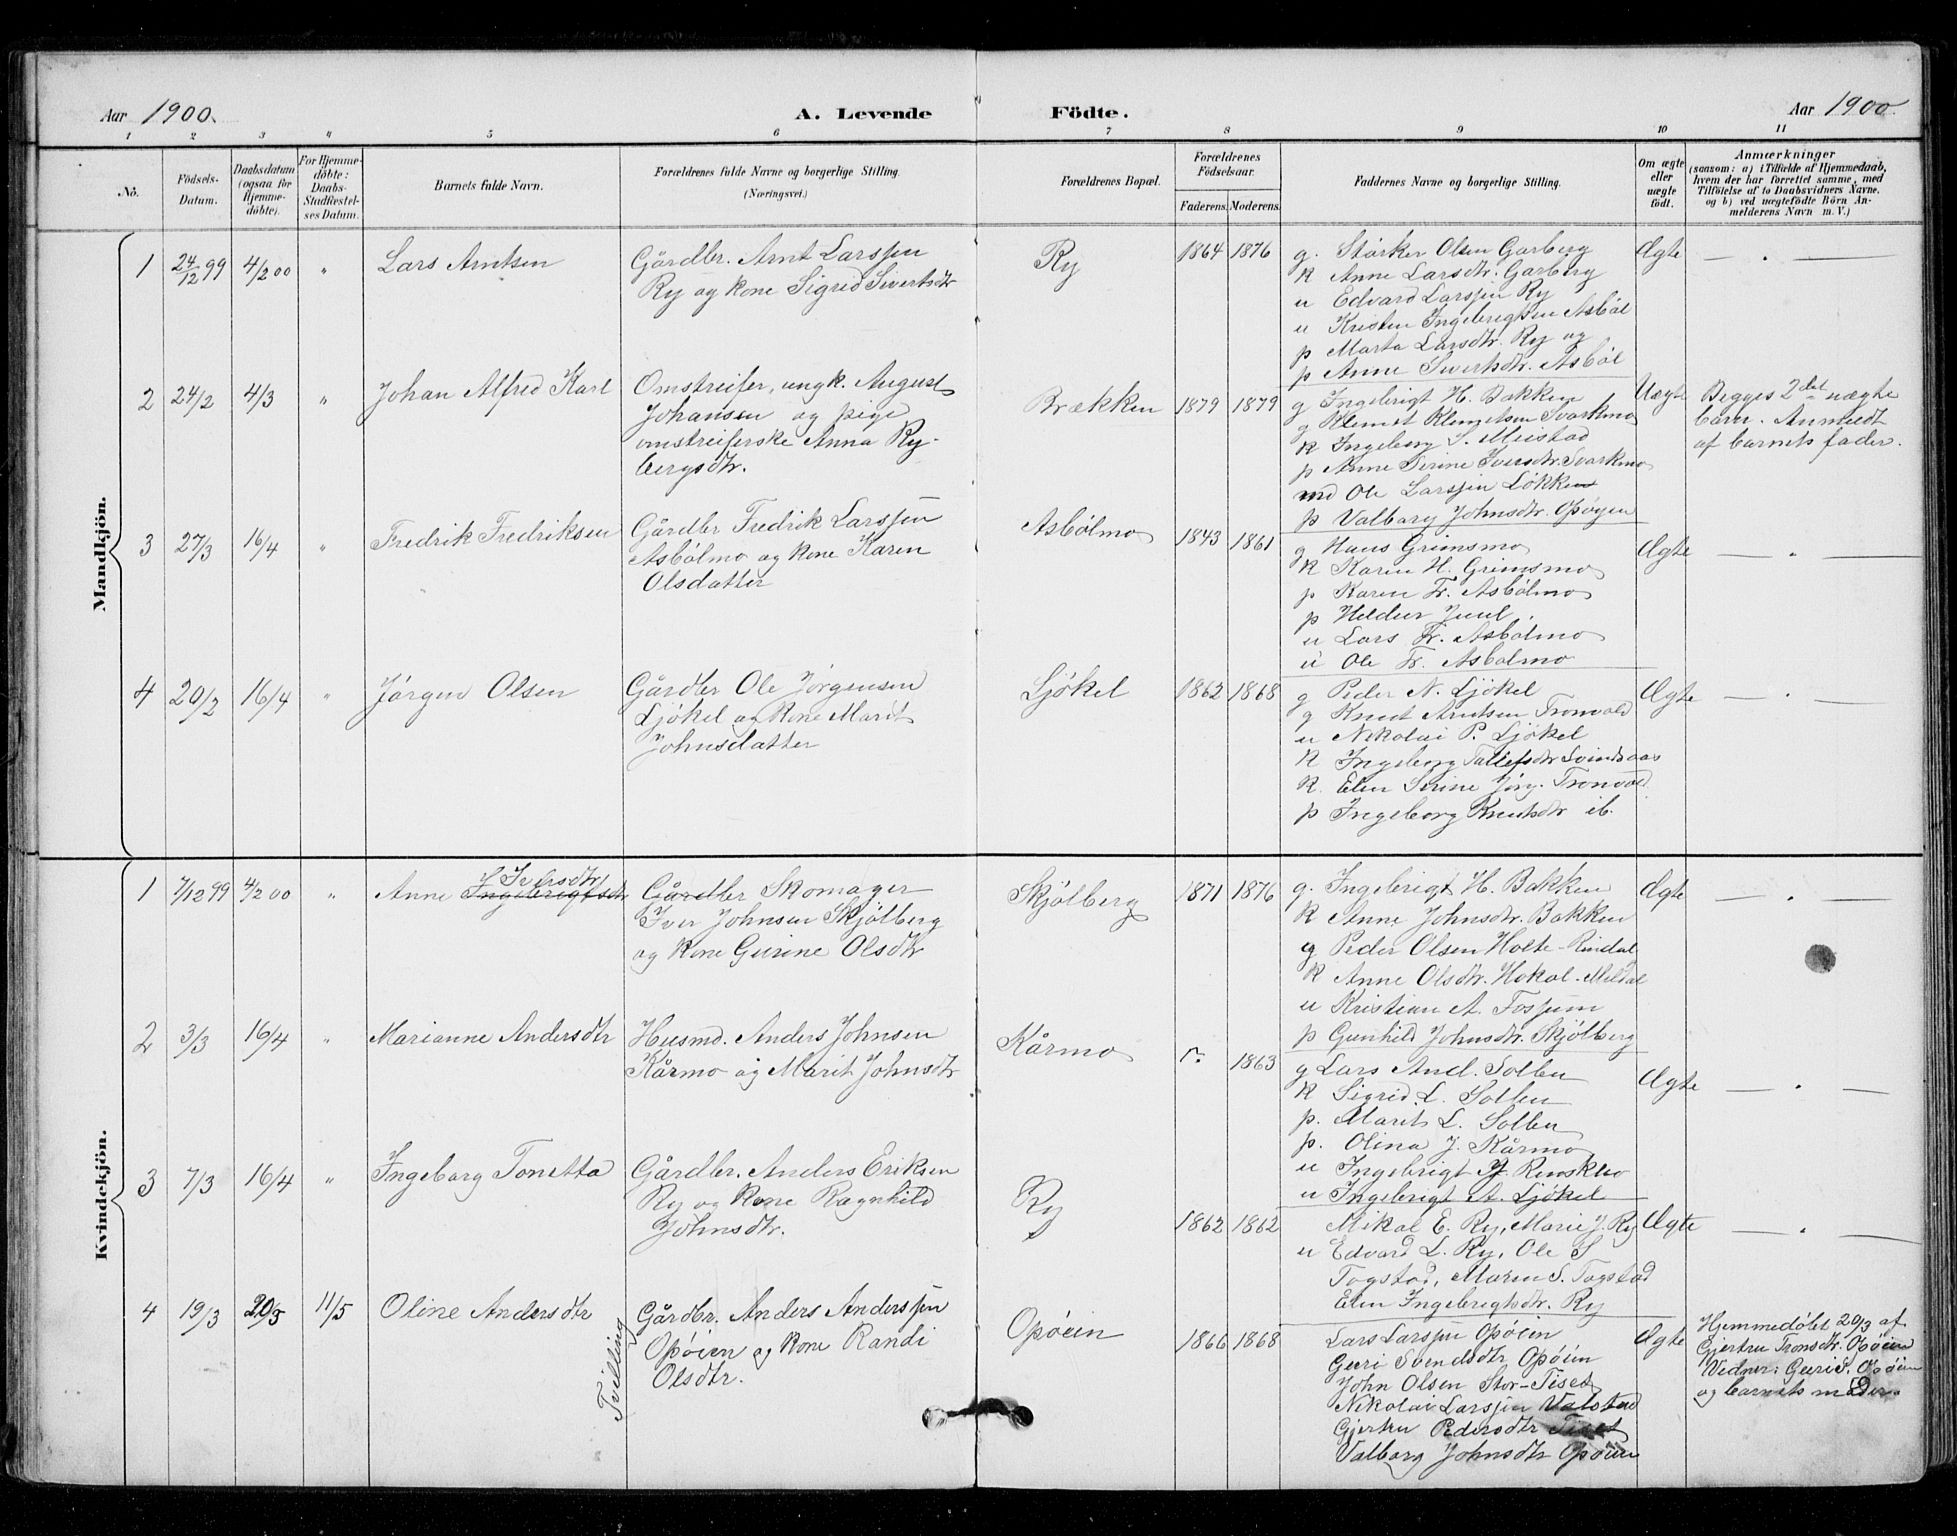 Aar 1900. A. Levende Födte. Aar 1900
1 2 3 " 5 6 7 8 9 10 11
No.
Födsels-
Datum.
Daabsdatum
(ogsaa for
Hjemme-
döbte).
For Hjemme-
döbte:
Daabs-
Stadfæstel-
ses Datum.
Barnets fulde Navn.
Forældrenes fulde Navne og borgerlige Stilling.
(Næringsvei.)
Forældrenes Bopæl.
Forældrenes
Födselsaar.
Faderens. Moderens.
Faddernes Navne og borgerlige Stilling.
Om ægte
eller
uægte
födt.
Anmærkninger
(saasom: a) i Tilfælde af Hjemmedaab,
hvem der har forrettet samme, med
Tilföielse af to Daabsvidners Navne.
og b) ved uægtefödte Börn An-
melderens Navn m. V.)
Mandkjön.
1 24/12 99 4/2 00 " Lars Arntsen
Gårdbr. Arnt Larssen
Ry og kone Sigrid Sivertsdtr
Ry 1864 1876
g. Stärker Olsen Garberg
K Anne Larsdtr. Garberg
u Edvard Larssen Ry
u Kristen Ingebrigtsen Asböl
p Marta Larsdtr. Ry og
p Anne Sivertsdtr. Asböl
Ægte — " —
2 24/2 4/3 " Johan Alfred Karl
Omstreifer, ungk. August
Johansen og pige
omstreiferske Anna Ry-
bergsdtr.
Brækken 1879 1879
g Ingebrigt H. Bakken
g Klemet Klemetsen Svarkmo
K Ingeborg S. Meistad
p Anne Serine Iversdtr. Svarkmo
md Ole Larssen Løkken
p Valborg Johnsdtr. Opøyen
Uægte
Begges 2det uægte
barn. Anmeldt
af barnets fader.
3 27/3 16/4 " Fredrik Fredriksen
Gårdbr Fredrik Larssen
Asbölmo og kone Karen
Olsdatter
Asbölmo 1843 1861
g Hans Grimsmo
K Karen H. Grimsmo
p Karen Fr. Asbölmo
p Heldur Juul.
u Lars Fr. Asbölmo
u Ole Fr. Asbölmo
Ægte — " —
4 20/2 16/4 " Jörgen Olsen
Gårdbr Ole Jörgensen
Ljökel og Kone Marit
Johnsdatter
Ljökel 1862 1868
g Peder N. Ljökel
g Knut Arntsen Tronvold
u Nikolai P. Ljökel
K Ingeborg Tallefsdtr Svindsaas
K. Elen Serine Jörg. Tronvold
p Ingeborg Knutsdtr ib.
Ægte — " —
Kvindekjön.
1 7/12 99 4/2 00 " Anne Iversdtr
Gårdbr Skomager
Iver Johnsen Skjölberg
og Kone Gurine Olsdtr
Skjölberg 1871 1876
g. Ingebrigt H. Bakken
K Anne Johnsdtr. Bakken
g Peder Olsen Holte-Rindal
K Anne Olsdtr. Hokol-Meldal
u Kristian A. Fossum
p Gunhild Johnsdtr. Skjölberg
Ægte — " —
2 3/3 16/4 " Marianne Andersdtr
Husmd. Anders Johnsen
Kårmo og Marit Johnsdtr
Kårmo 1863
g Lars And. Solbu
K Sigrid L. Solbu
p. Marit L. Solbu
p. Olina J. Kårmo
u Ingebrigt J. Renskleo
u Ingebrigt A. Ljökel
Ægte — " —
3 7/3 16/4 " Ingeborg Tonetta
Gårdbr. Anders Eriksen
Ry og Kone Ragnhild
Johnsdtr.
Ry 1862 1862
Mikal E. Ry, Marie J. Ry
u Edvard L. Ry, Ole S
Togstad, Maren S. Togstad
Elen Ingebrigtsdtr. Ry
Ægte — " —
4 19/3 20/3 11/5 Oline Andersdtr
Tvilling
Gårdbr. Anders Anderssen
Opöien og kone Randi
Olsdtr.
Opöien 1866 1868
Lars Larssen Opöien
Guri Svendsdtr Opöien
John Olsen Stor-Tiset
Nikolai Larssen Valstad
Gjertru Pedersdtr Tiset
Valborg Johnsdtr Opöien
Ægte
Hjemmedöbt 20/3 af
Gjertru Tronsdtr. Opöien
Vidner: Guri S. Opöien
og barnets moder.